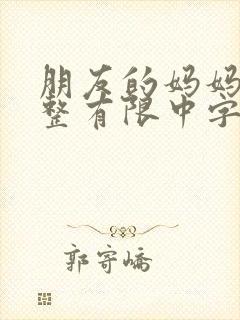 朋友的妈妈
整有限中字
郭寄峤